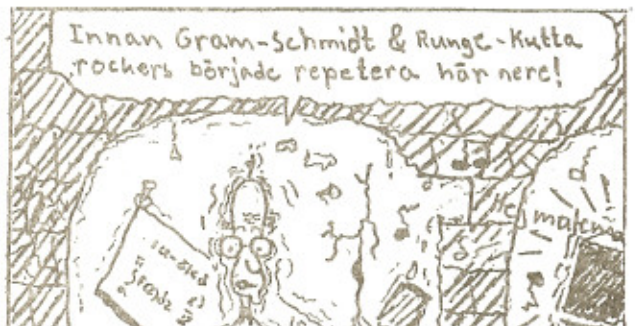 Innan Gram-Schmidt & Runge-Kutta
rockers började repetera här nere!
Hej matem